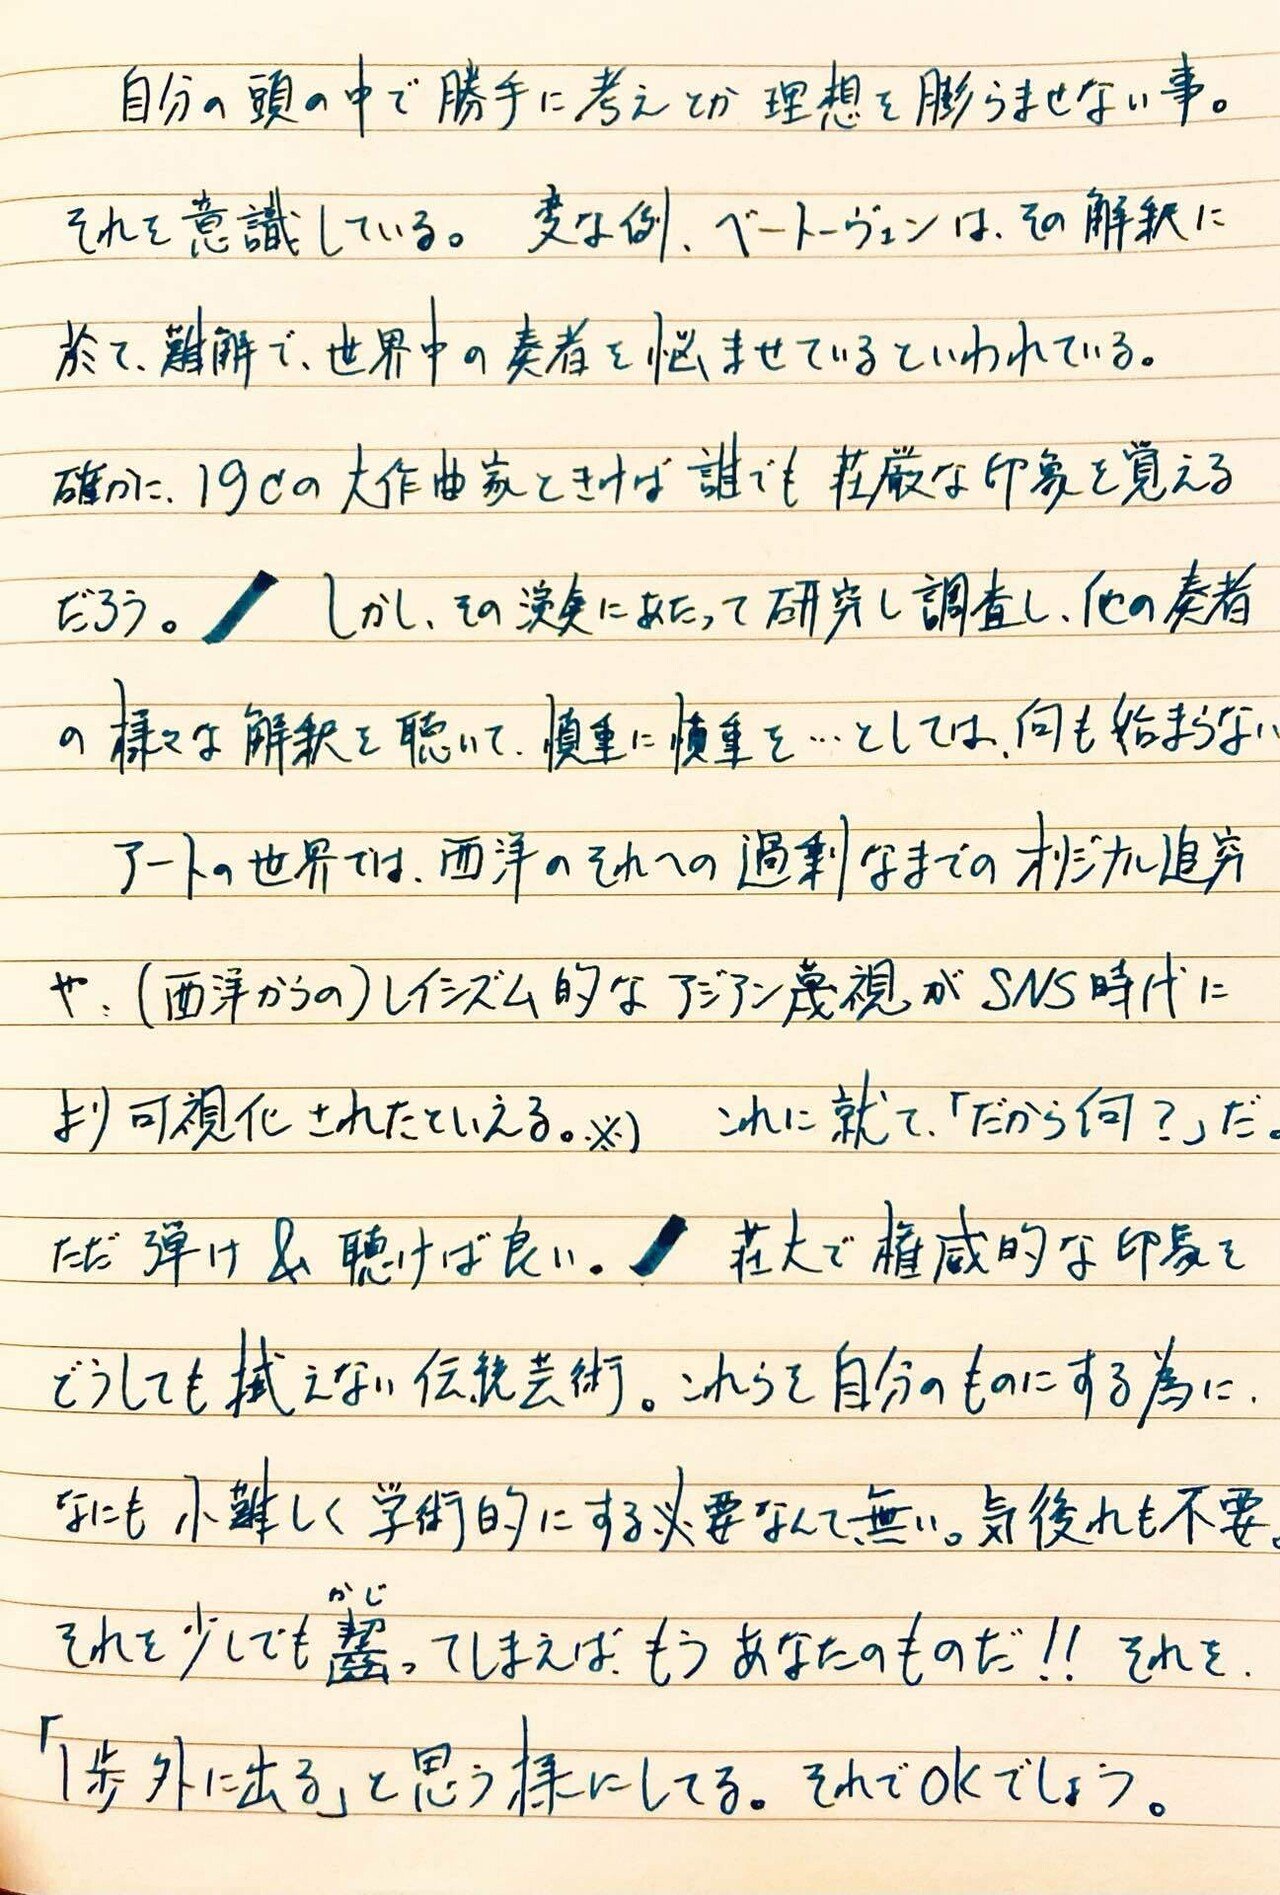 自分の頭の中で勝手に考えとか理想を膨らませない事。
それを意識している。 変な例、ベートーヴェンは、その解釈に
於て、難解で、世界中の奏者を悩ませているといわれている。
確かに、19cの大作曲家ときけば誰でも荘厳な印象を覚える
だろう。/ しかし、その演奏にあたって研究し調査し、他の奏者
の様々な解釈を聴いて、慎重に慎重を…としては、何も始まらない
アートの世界では、西洋のそれへの過剰なまでのオリジナル追究
や、(西洋からの)レイシズム的なアジアン蔑視がSNS時代に
より可視化されたといえる。※) これに就て、「だから何?」だ。
ただ弾け&聴けば良い。/ 荘大で権威的な印象を
どうしても拭えない伝統芸術。これらを自分のものにする為に、
なにも小難しく学術的にする必要なんて無い。気後れも不要。
かじ
それを少しでも齧ってしまえば、もうあなたのものだ!! それを、
「1歩外に出る」と思う様にしてる。それでOKでしょう。